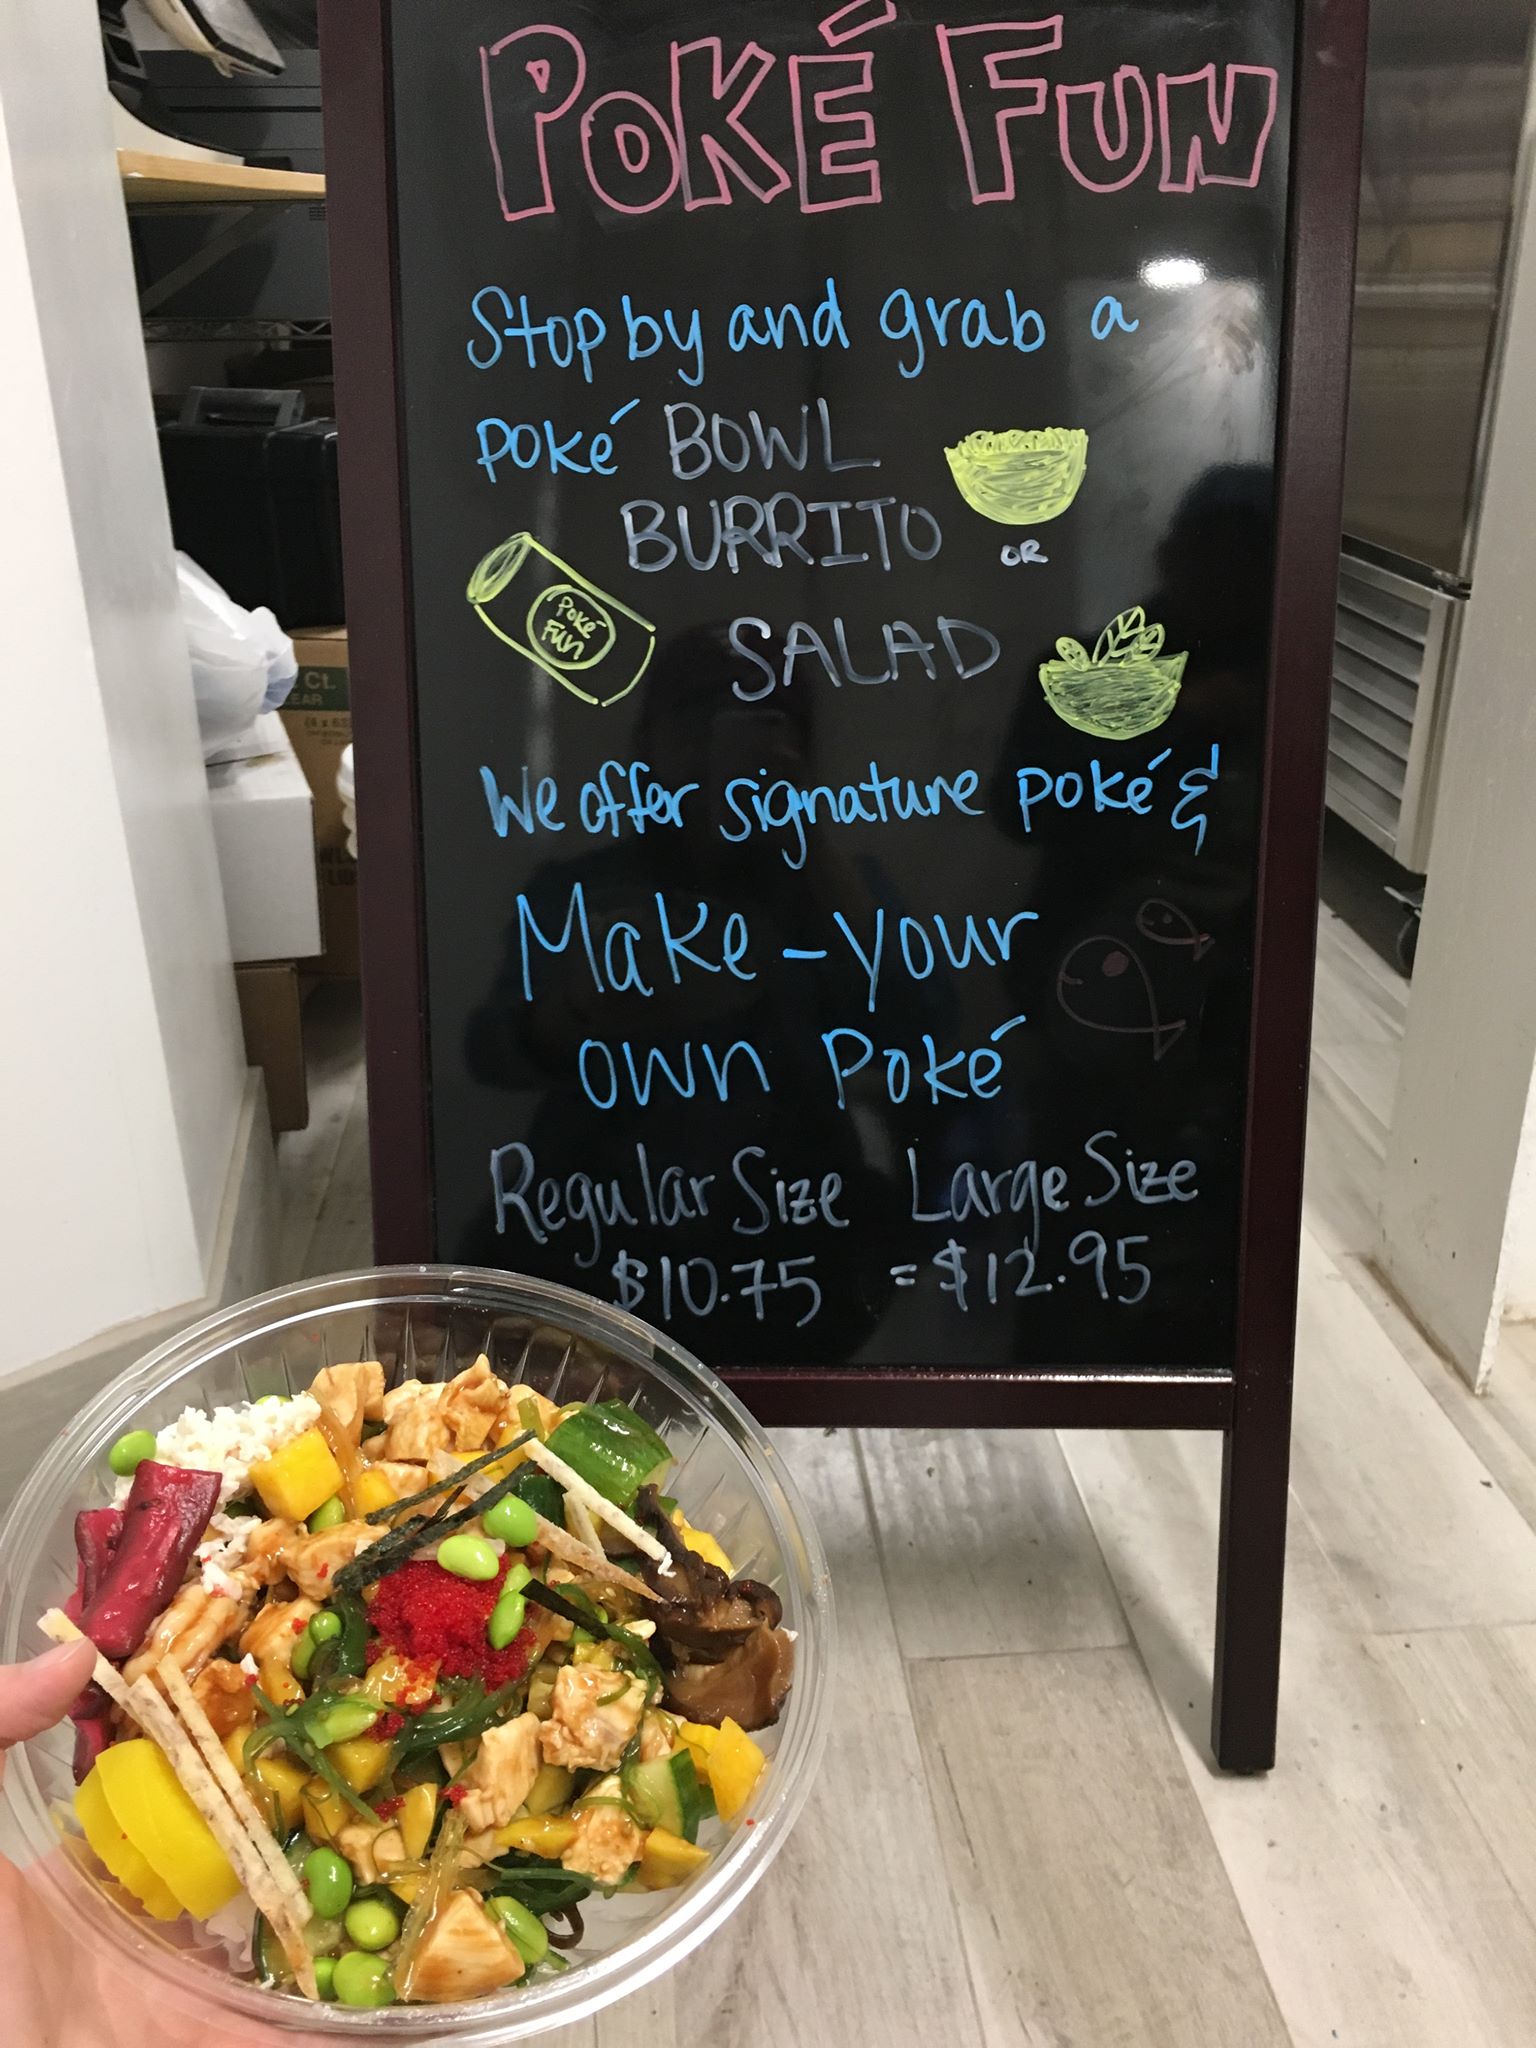 POKÉ FUN
Stop by and grab a
poké BOWL
BURRITO OR
Poké
Fun
SALAD
We offer signature poké &
Make-your
own Poké
Regular Size Large Size
$10.75 = $12.95
Ct.
EAR